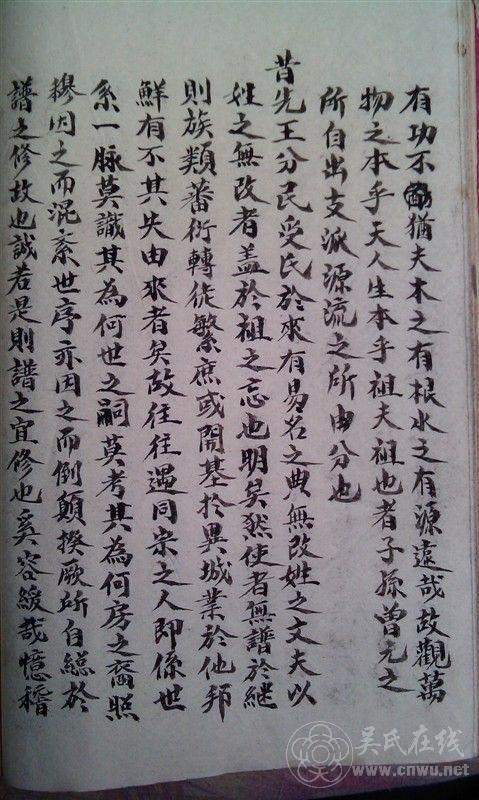 有功不猶夫木之有根水之有源遠哉故觀萬
物之本乎天人生本乎祖夫祖也者子孫曾元之
所自出支派源流之所由分也
昔先王分民受氏於來有易名之典無改姓之文夫以
姓之無改者盖於祖之忘也明矣然使者無譜於継
則族類蕃衍轉徒繁庶或開基扵異城業於他邦
鮮有不其失由來者矣故往往遇同宗之人即係世
系一脉莫識其為何世之嗣莫考其為何房之裔照
穆因之而混紊世序亦因之而倒顛揆厥所自緦於
譜之修故也誠若是則譜之宜修也奚容緩哉憶稽
吴氏在线
www.cnwu.net